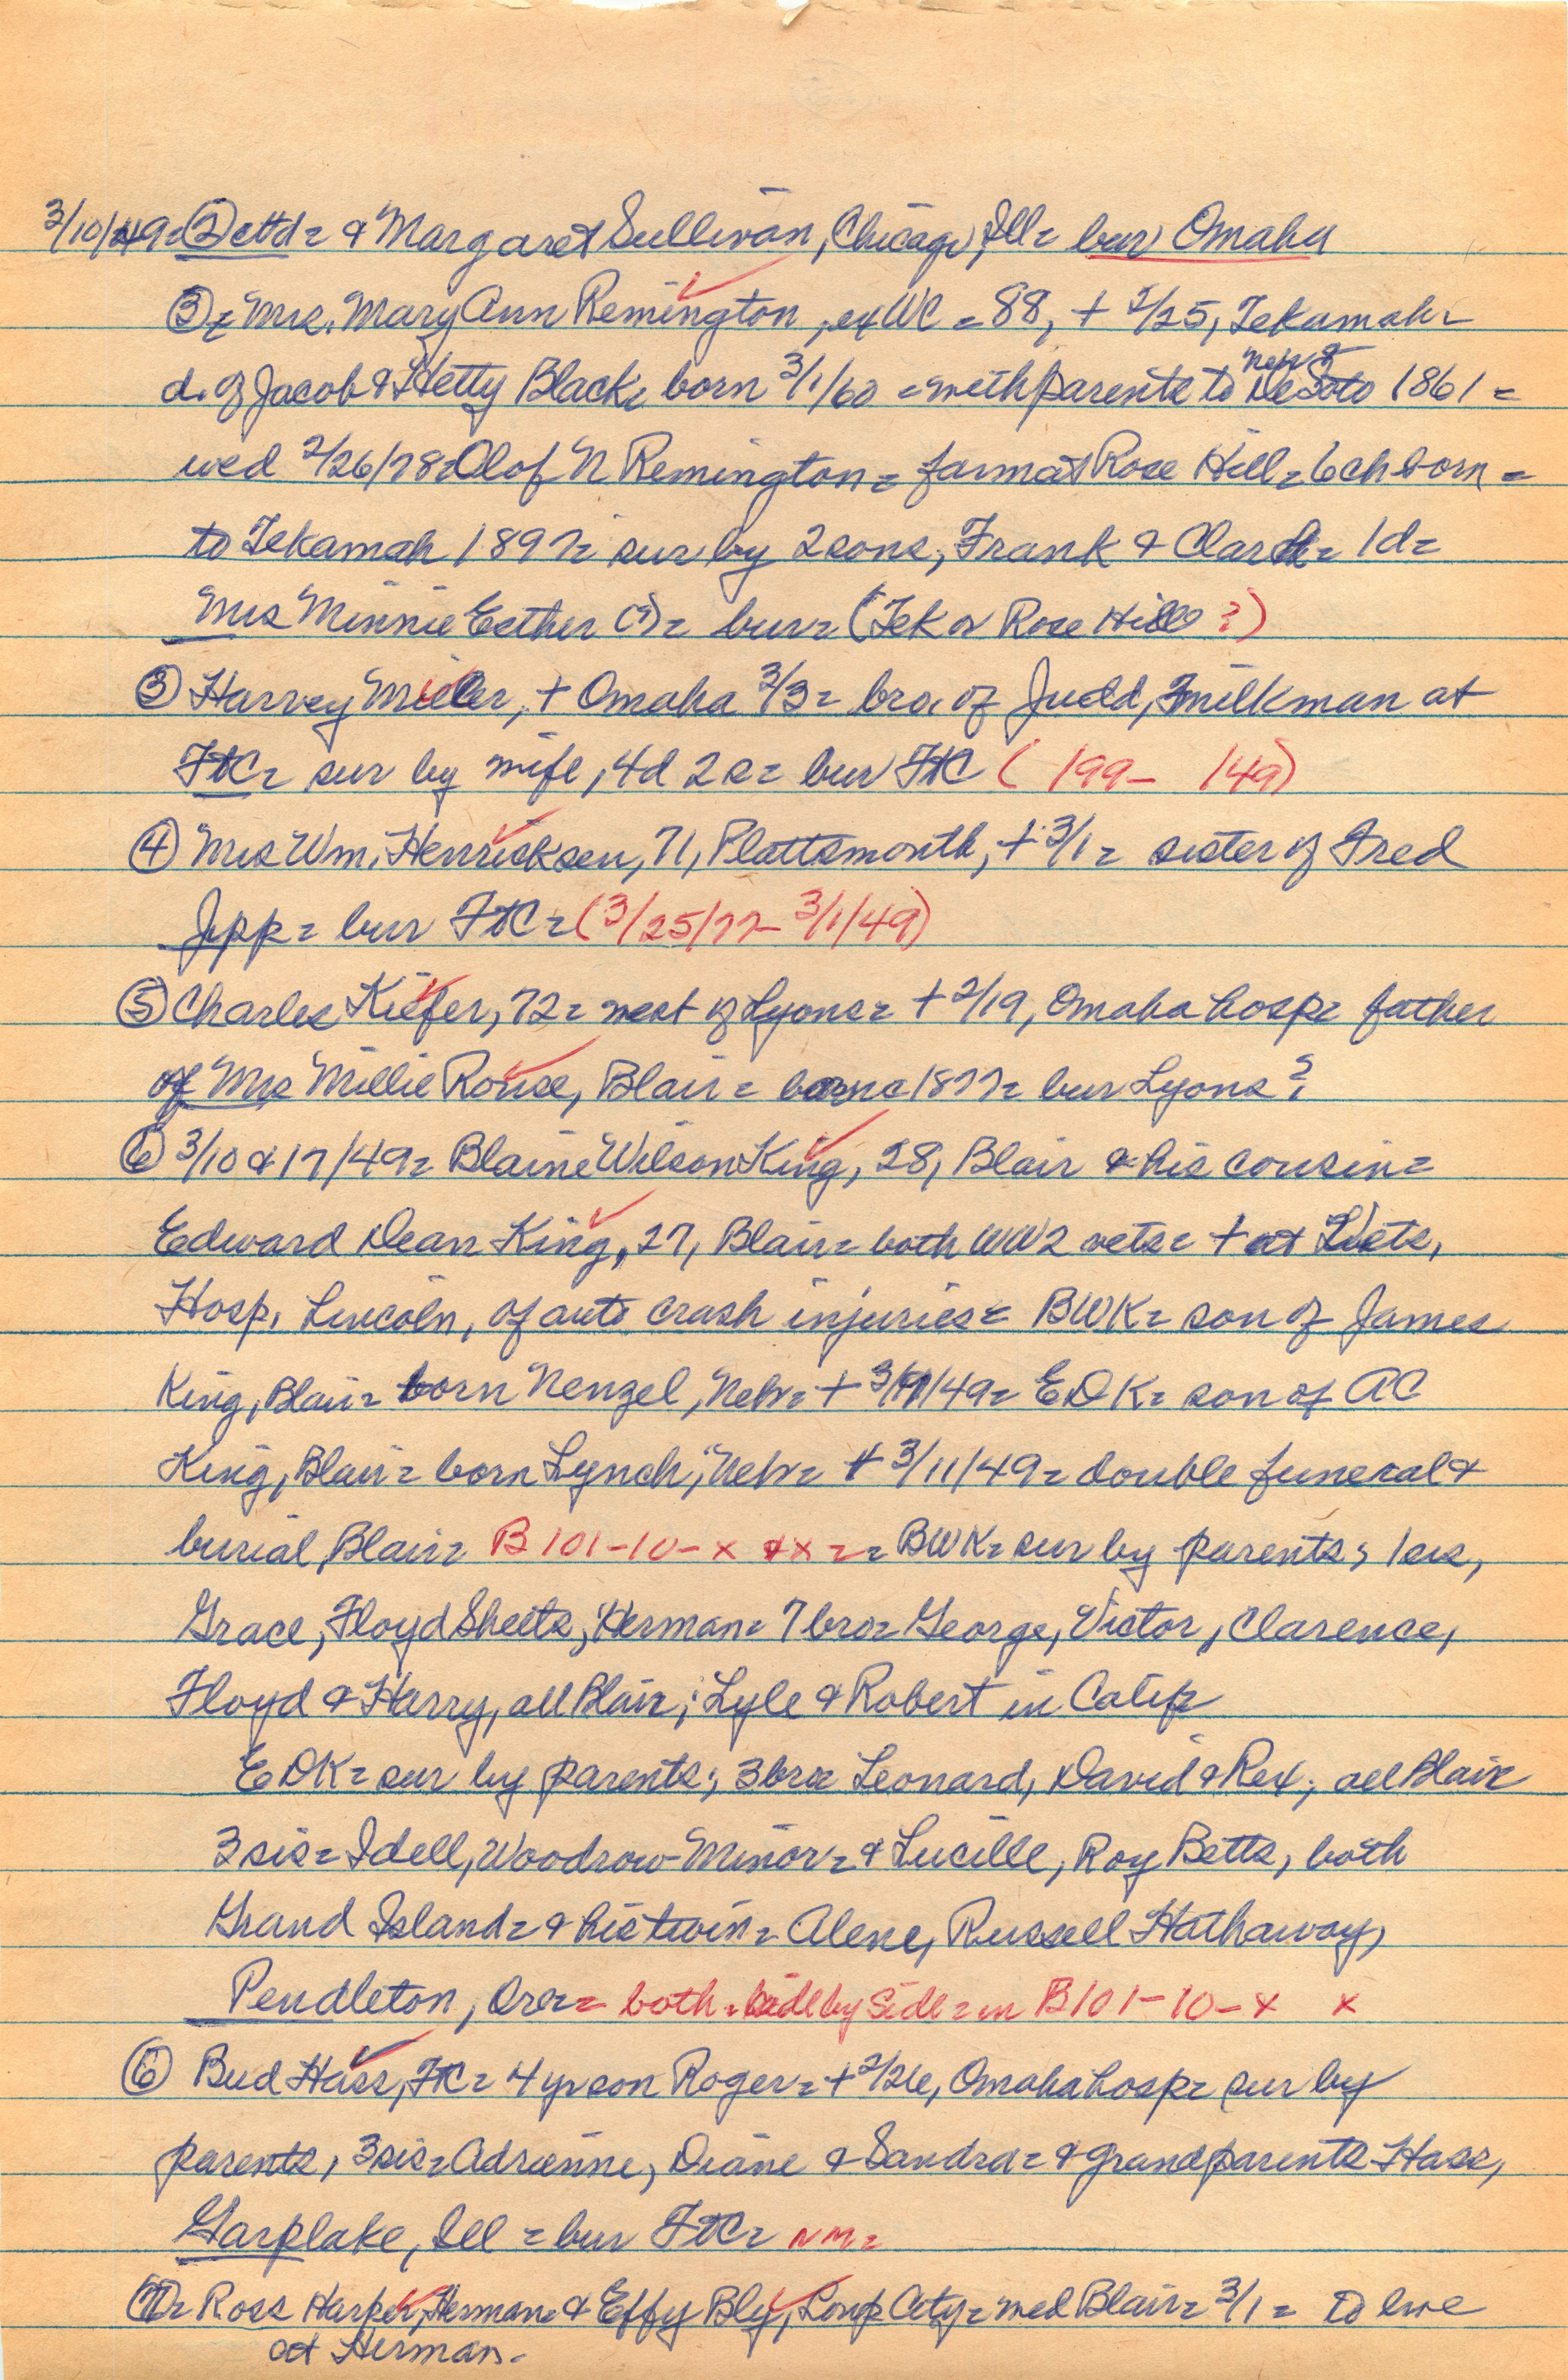 3/10/49= ② cttd= & Margaret Sullivan, Chicago, Ill= bur Omaha
③= Mrs. Mary Ann Remington, exWC = 88, + 2/25, Tekamah=
d. of Jacob & Hetty Black= born 3/1/60 = with parents to near DeSoto 1861 =
wed 2/26/78= Olof N Remington = farm at Rose Hill= 6 ch born =
to Tekamah 1897= sur by 2 sons, Frank & Clark= 1d=
Mrs Minnie Esther (?)= bur= (Tek or Rose Hill ?)
③ Harvey Miller, + Omaha 3/3= bro. of Judd, milkman at
FtC= sur by wife, 4d 2s= bur FtC ( 199- 149)
④ Mrs Wm. Henricksen, 71, Plattsmouth, + 3/1= sister of Fred
Jipp= bur FtC= (3/25/77- 3/1/49)
⑤ Charles Kiefer, 72= west of Lyons= + 2/19, Omaha hosp= father
of Mrs Millie Rouse, Blair= born 1877= bur Lyons?
⑥ 3/10 & 17/49= Blaine Wilson King, 28, Blair & his cousin=
Edward Dean King, 27, Blair= both WW2 vets= + at Vets,
Hosp. Lincoln, of auto crash injuries= BWK= son of James
King, Blair= born Nenzel, Nebr= + 3/11/49= EDK= son of AC
King, Blair= born Lynch, Nebr= + 3/11/49= double funeral &
burial Blair= B101-10-x &x == BWK= sur by parents; 1 sis,
Grace, Floyd Sheets, Herman= 7 bro= George, Victor, Clarence,
Floyd & Harry, all Blair; Lyle & Robert in Calif=
EDK= sur by parents; 3 bro= Leonard, David & Rex; all Blair
3 sis= Idell, Woodrow Minor= & Lucille, Roy Betts, both
Grand Island= & his twin= Alene, Russell Hathaway,
Pendleton, Ore= both= side by side= in B101-10-x x
⑥ Bud Hass, FtC= 4 yr son Roger= + 2/26, Omaha hosp= sur by
parents, 3 sis= Adrienne, Diane & Sandra= & grandparents Hass,
Garplake, Ill = bur FtC= NM=
⑦= Ross Harper, Herman= & Effy Bly, Loup City= wed Blair= 3/1= to live
at Herman.